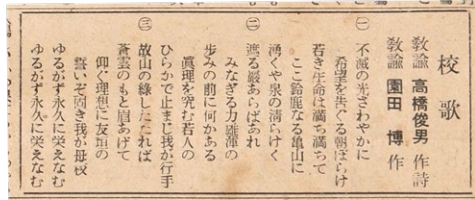 校歌
教諭 高橋俊男 作詩
教諭 園田 博 作
㈠ 不滅の光さわやかに
希望を告ぐる朝ぼらけ
若き生命は満ち満ちて
ここ鈴鹿なる亀山に
湧くや泉の清らけく
㈡ 遮る巌あらばあれ
みなぎる力雄渾の
歩みの前に何かある
眞理を究む若人の
ひらかで止まじ我が行手
㈢ 故山の綠したたれば
蒼雲のもと眉あげて
仰ぐ理想に友垣の
誓いぞ固き我が母校
ゆるがず永久に栄えなむ
ゆるがず永久に栄えなむ